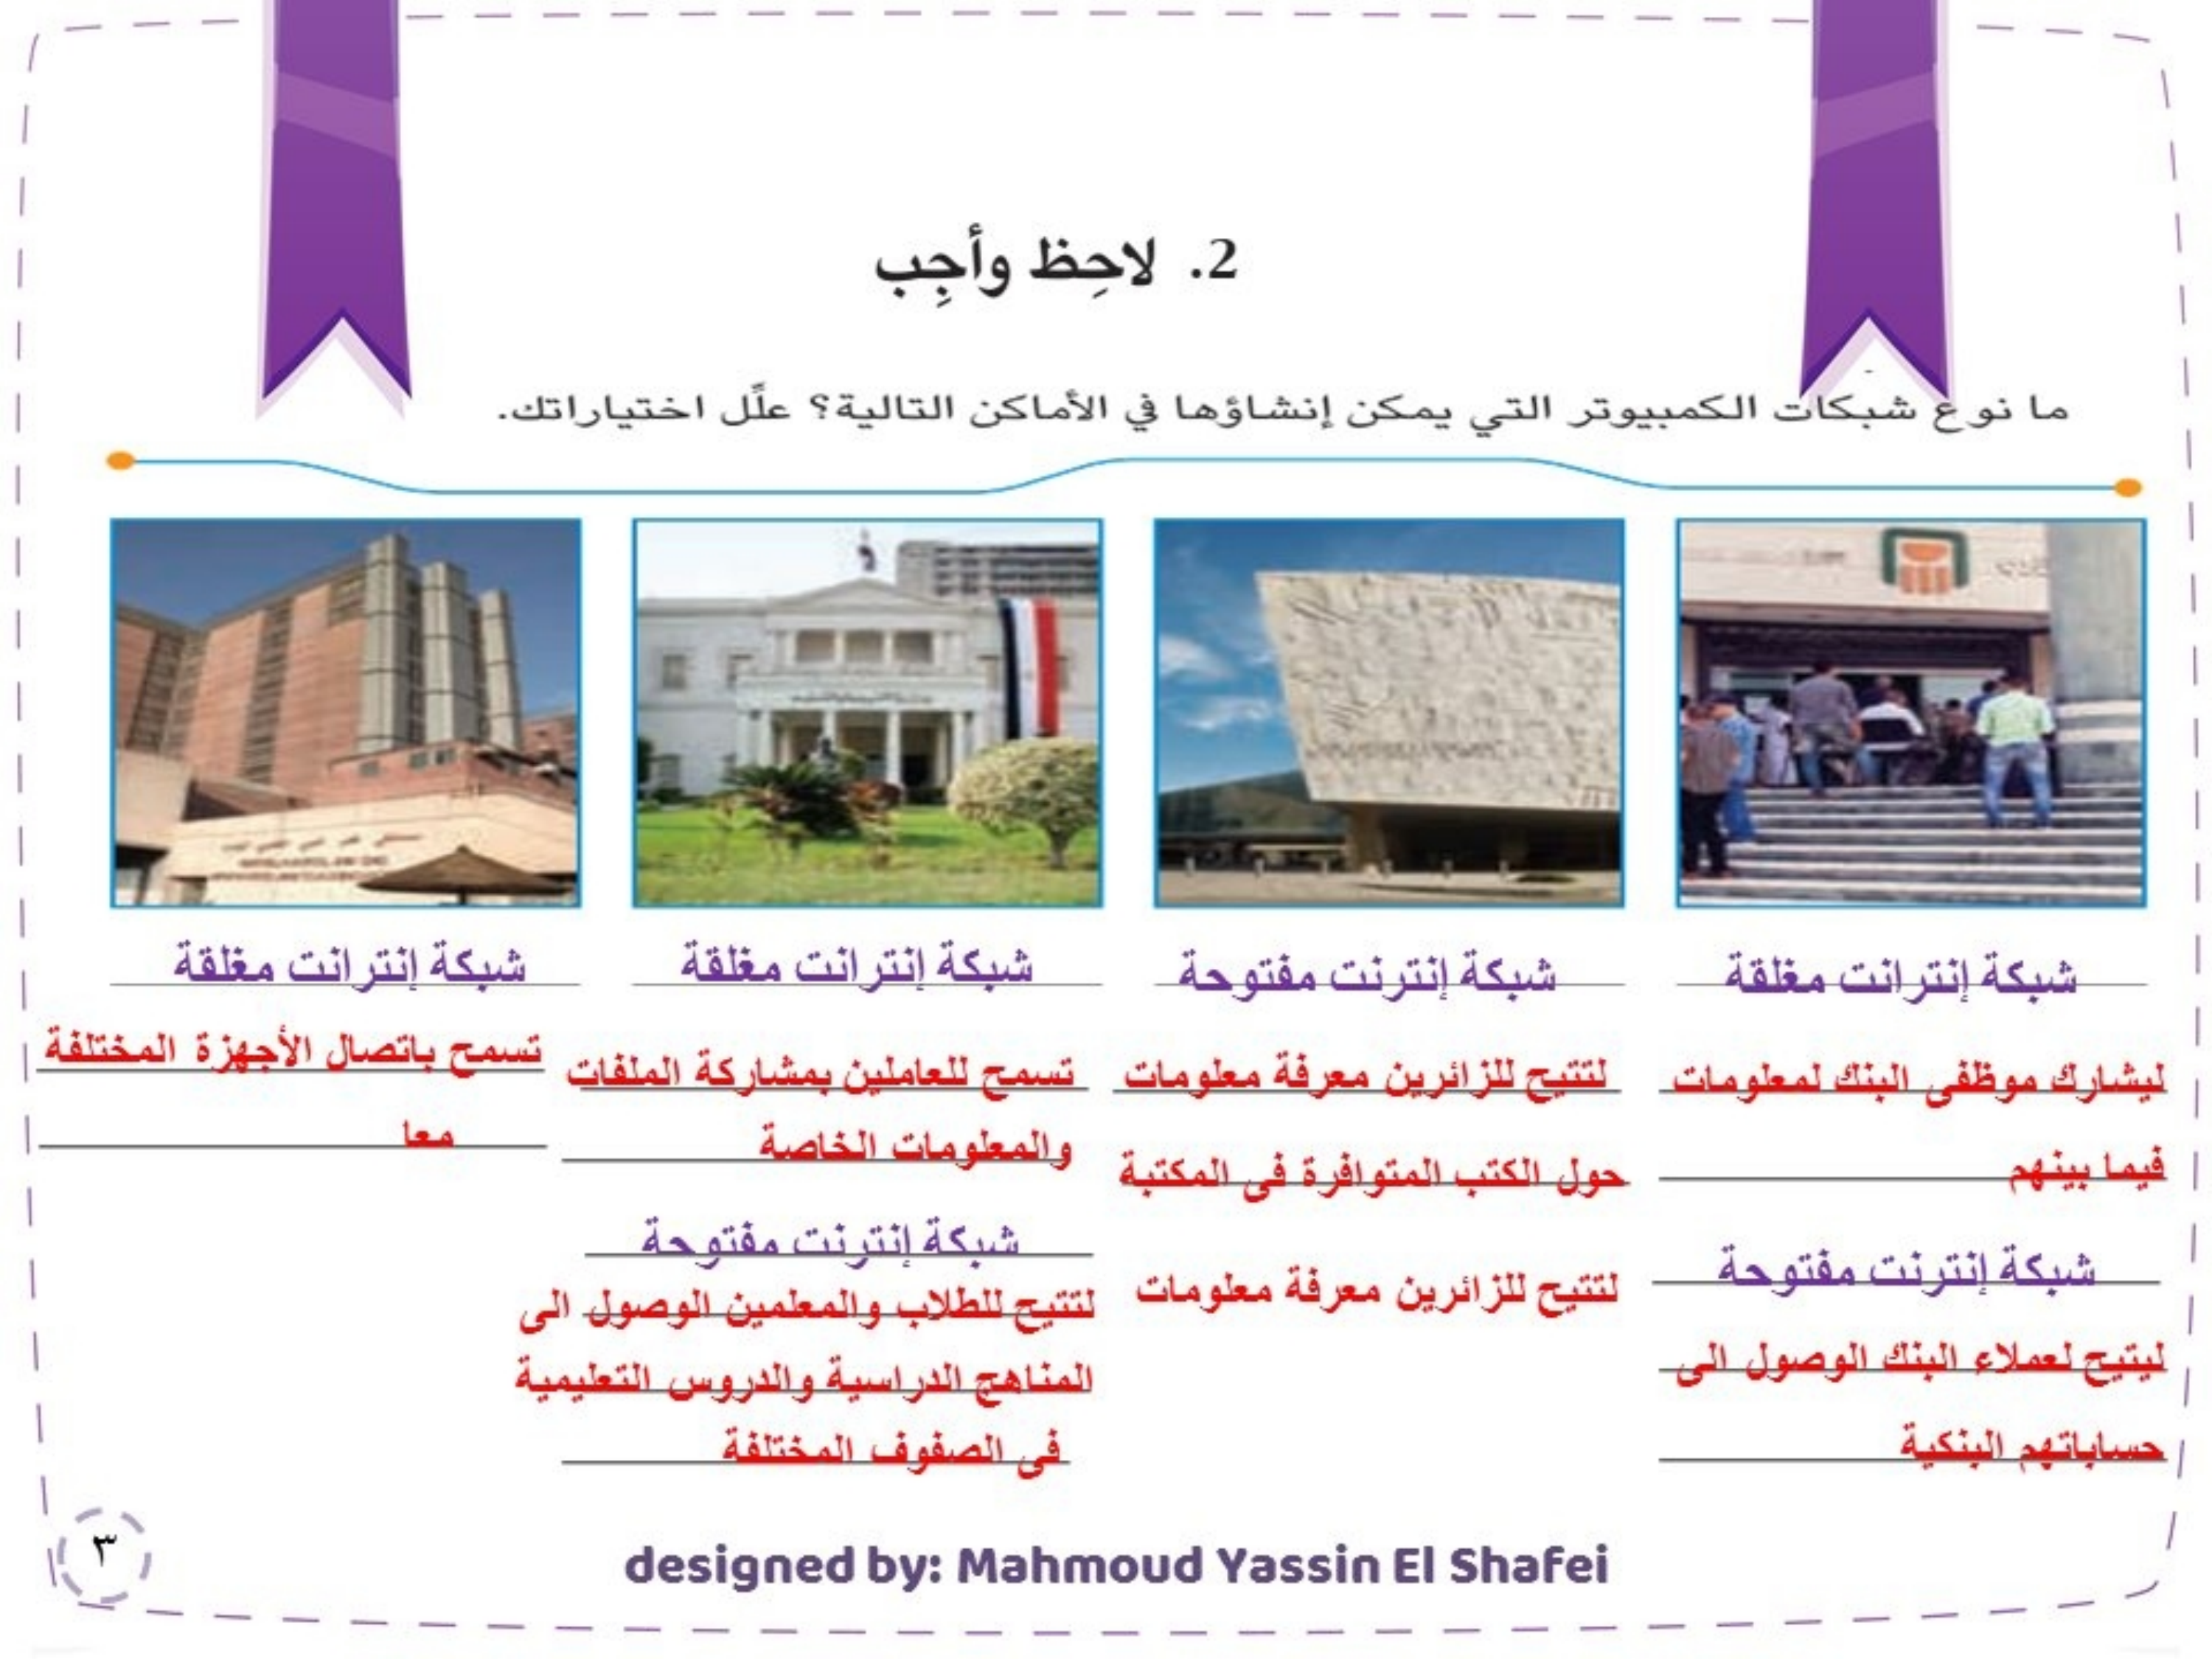 2. لاحِظ وأجِب
ما نوع شبكات الكمبيوتر التي يمكن إنشاؤها في الأماكن التالية؟ علِّل اختياراتك.
شبكة إنترانت مغلقة
ليشارك موظفى البنك لمعلومات
فيما بينهم
شبكة إنترنت مفتوحة
ليتيح لعملاء البنك الوصول الى
حساباتهم البنكية
شبكة إنترنت مفتوحة
لتتيح للزائرين معرفة معلومات
حول الكتب المتوافرة فى المكتبة
لتتيح للزائرين معرفة معلومات
شبكة إنترانت مغلقة
تسمح للعاملين بمشاركة الملفات
والمعلومات الخاصة
شبكة إنترنت مفتوحة
لتتيح للطلاب والمعلمين الوصول الى
المناهج الدراسية والدروس التعليمية
فى الصفوف المختلفة
شبكة إنترانت مغلقة
تسمح باتصال الأجهزة المختلفة
معا
٣
designed by: Mahmoud Yassin El Shafei